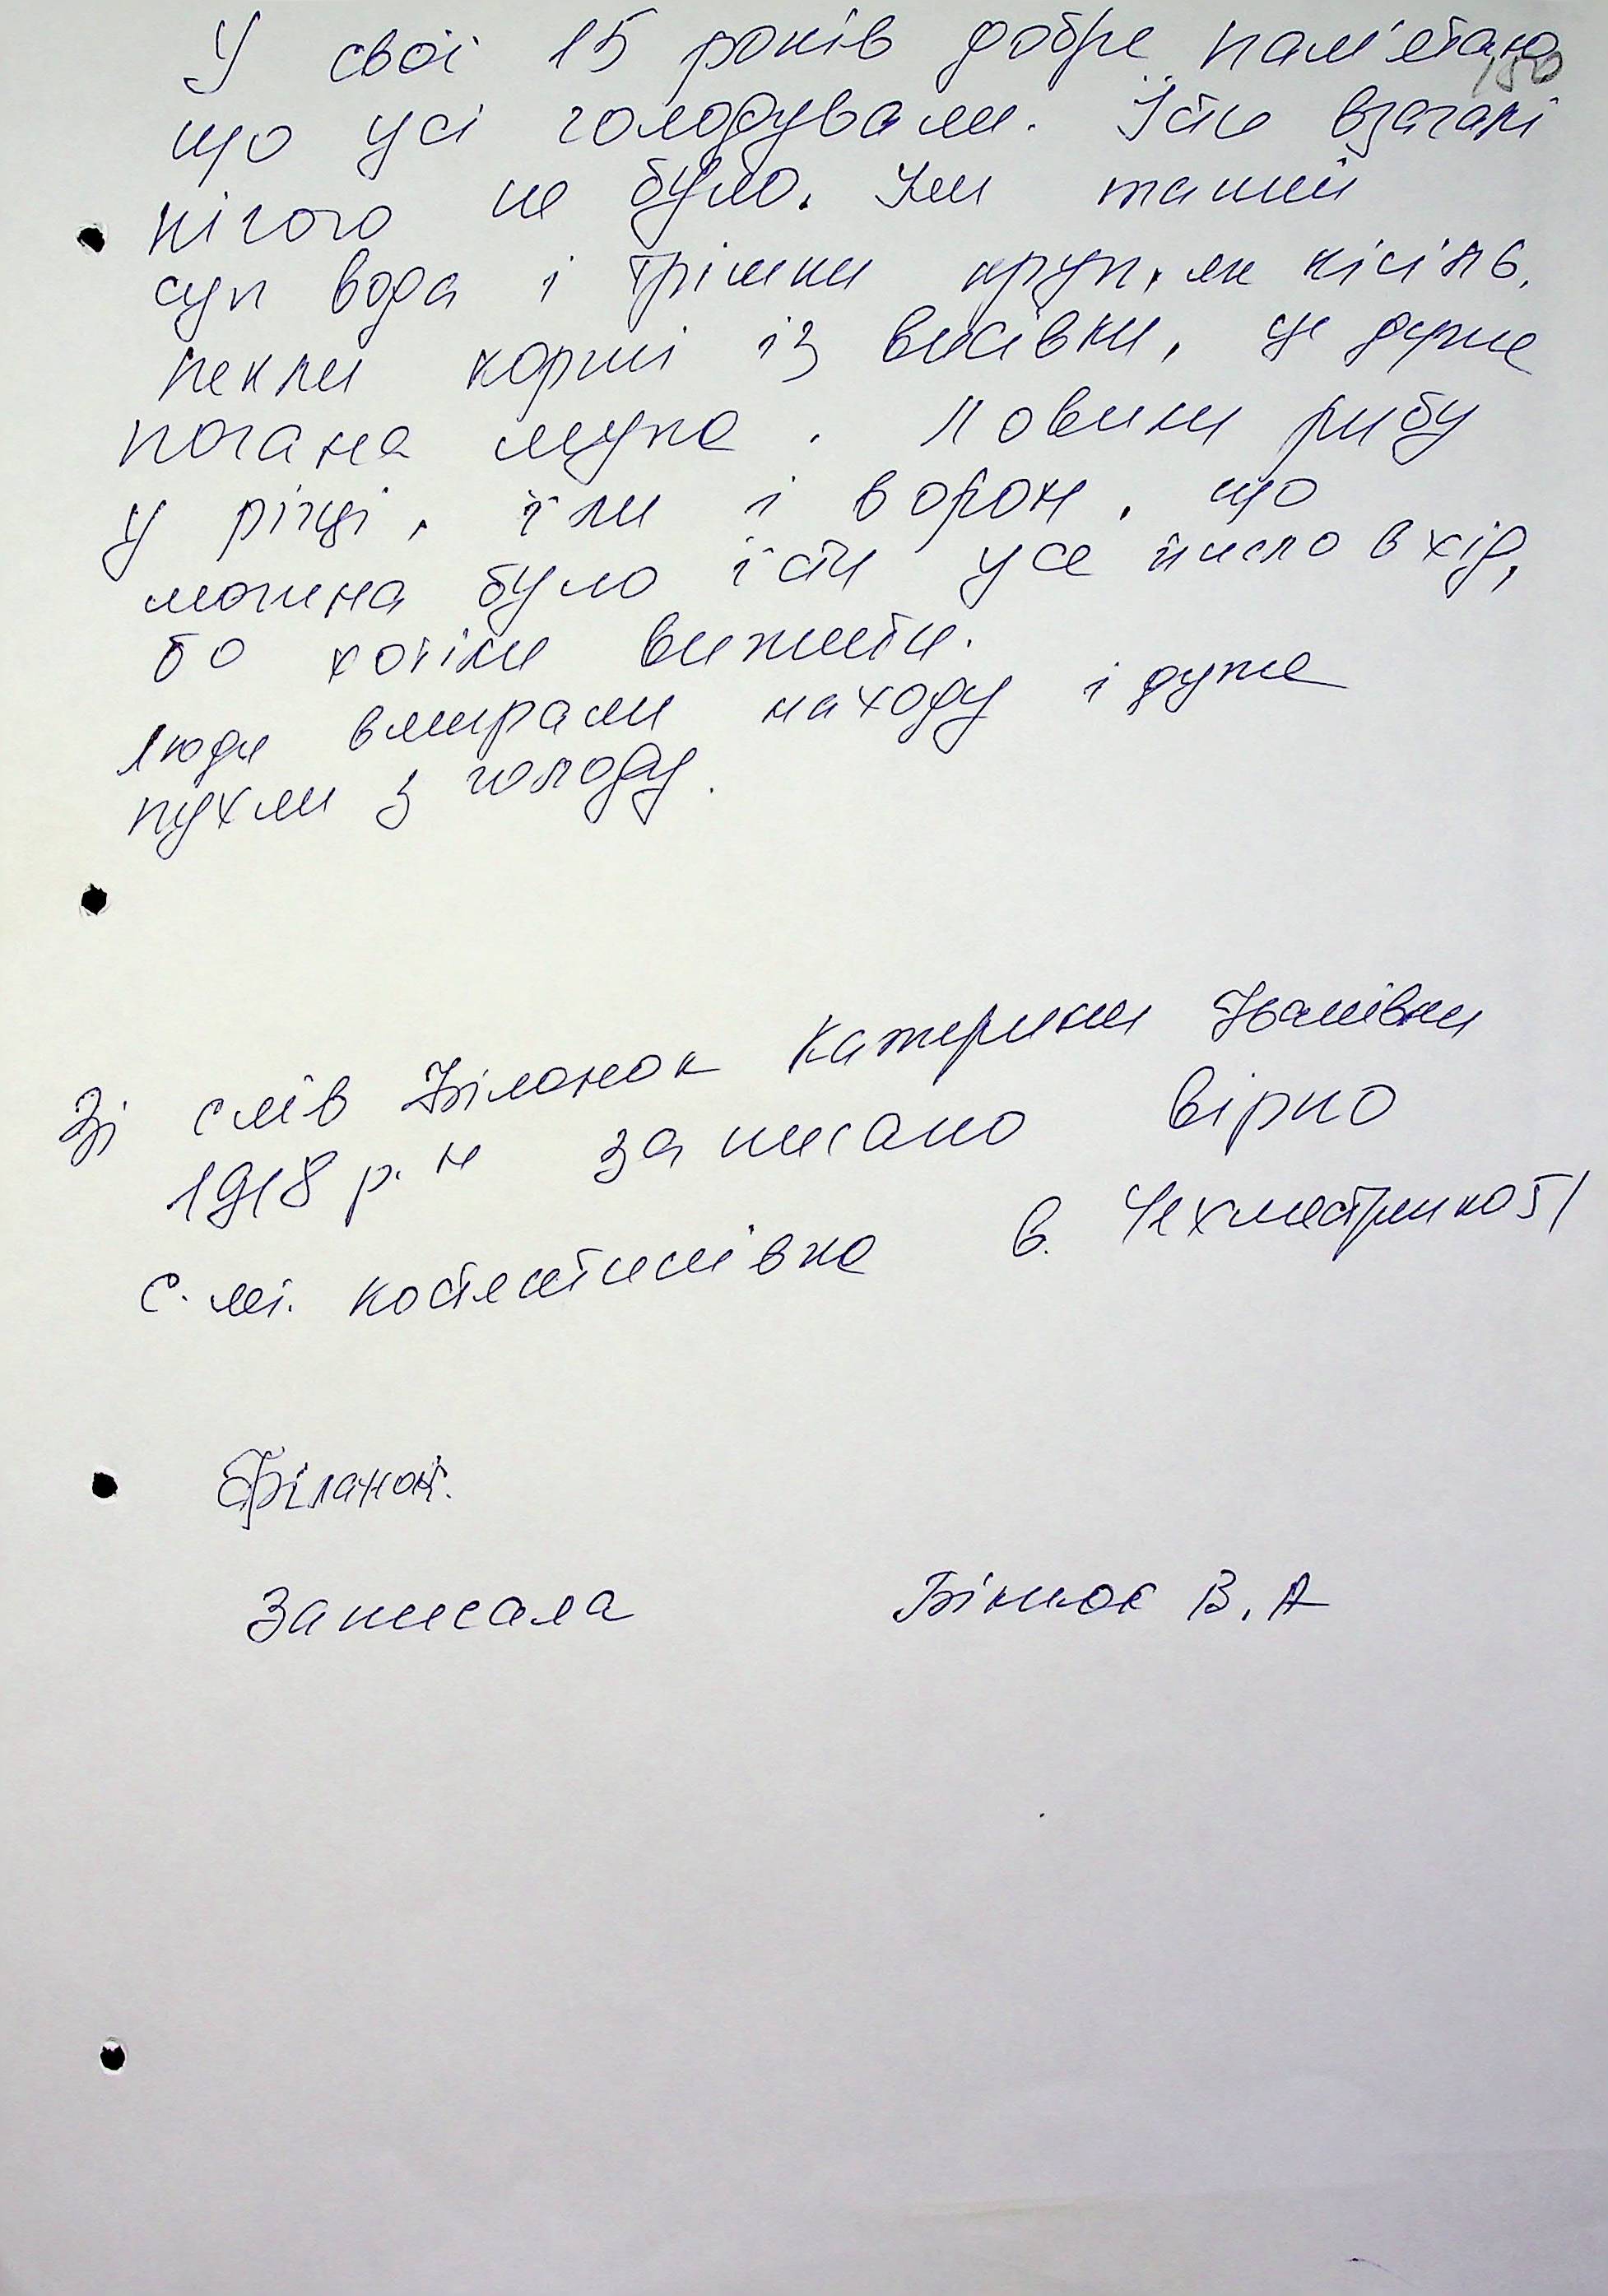 У свої 15 років добре пам'ятаю
що усі голодували. Їсти взагалі
нічого не було. Їли такий
суп вода і трішки круп, як кісіль.
пекли коржі із висівки, це дуже
погана мука. Ловили рибу
у річці, їли і ворон, що
можна було їсти усе йшло в хід,
бо хотіли вижити.
Люди вмирали находу і дуже
пухли з голоду.
Зі слів Біланок Катерини Іванівни
1918 р.н записано вірно
с.мі. Костянтинівка в. 51
Записала В.А